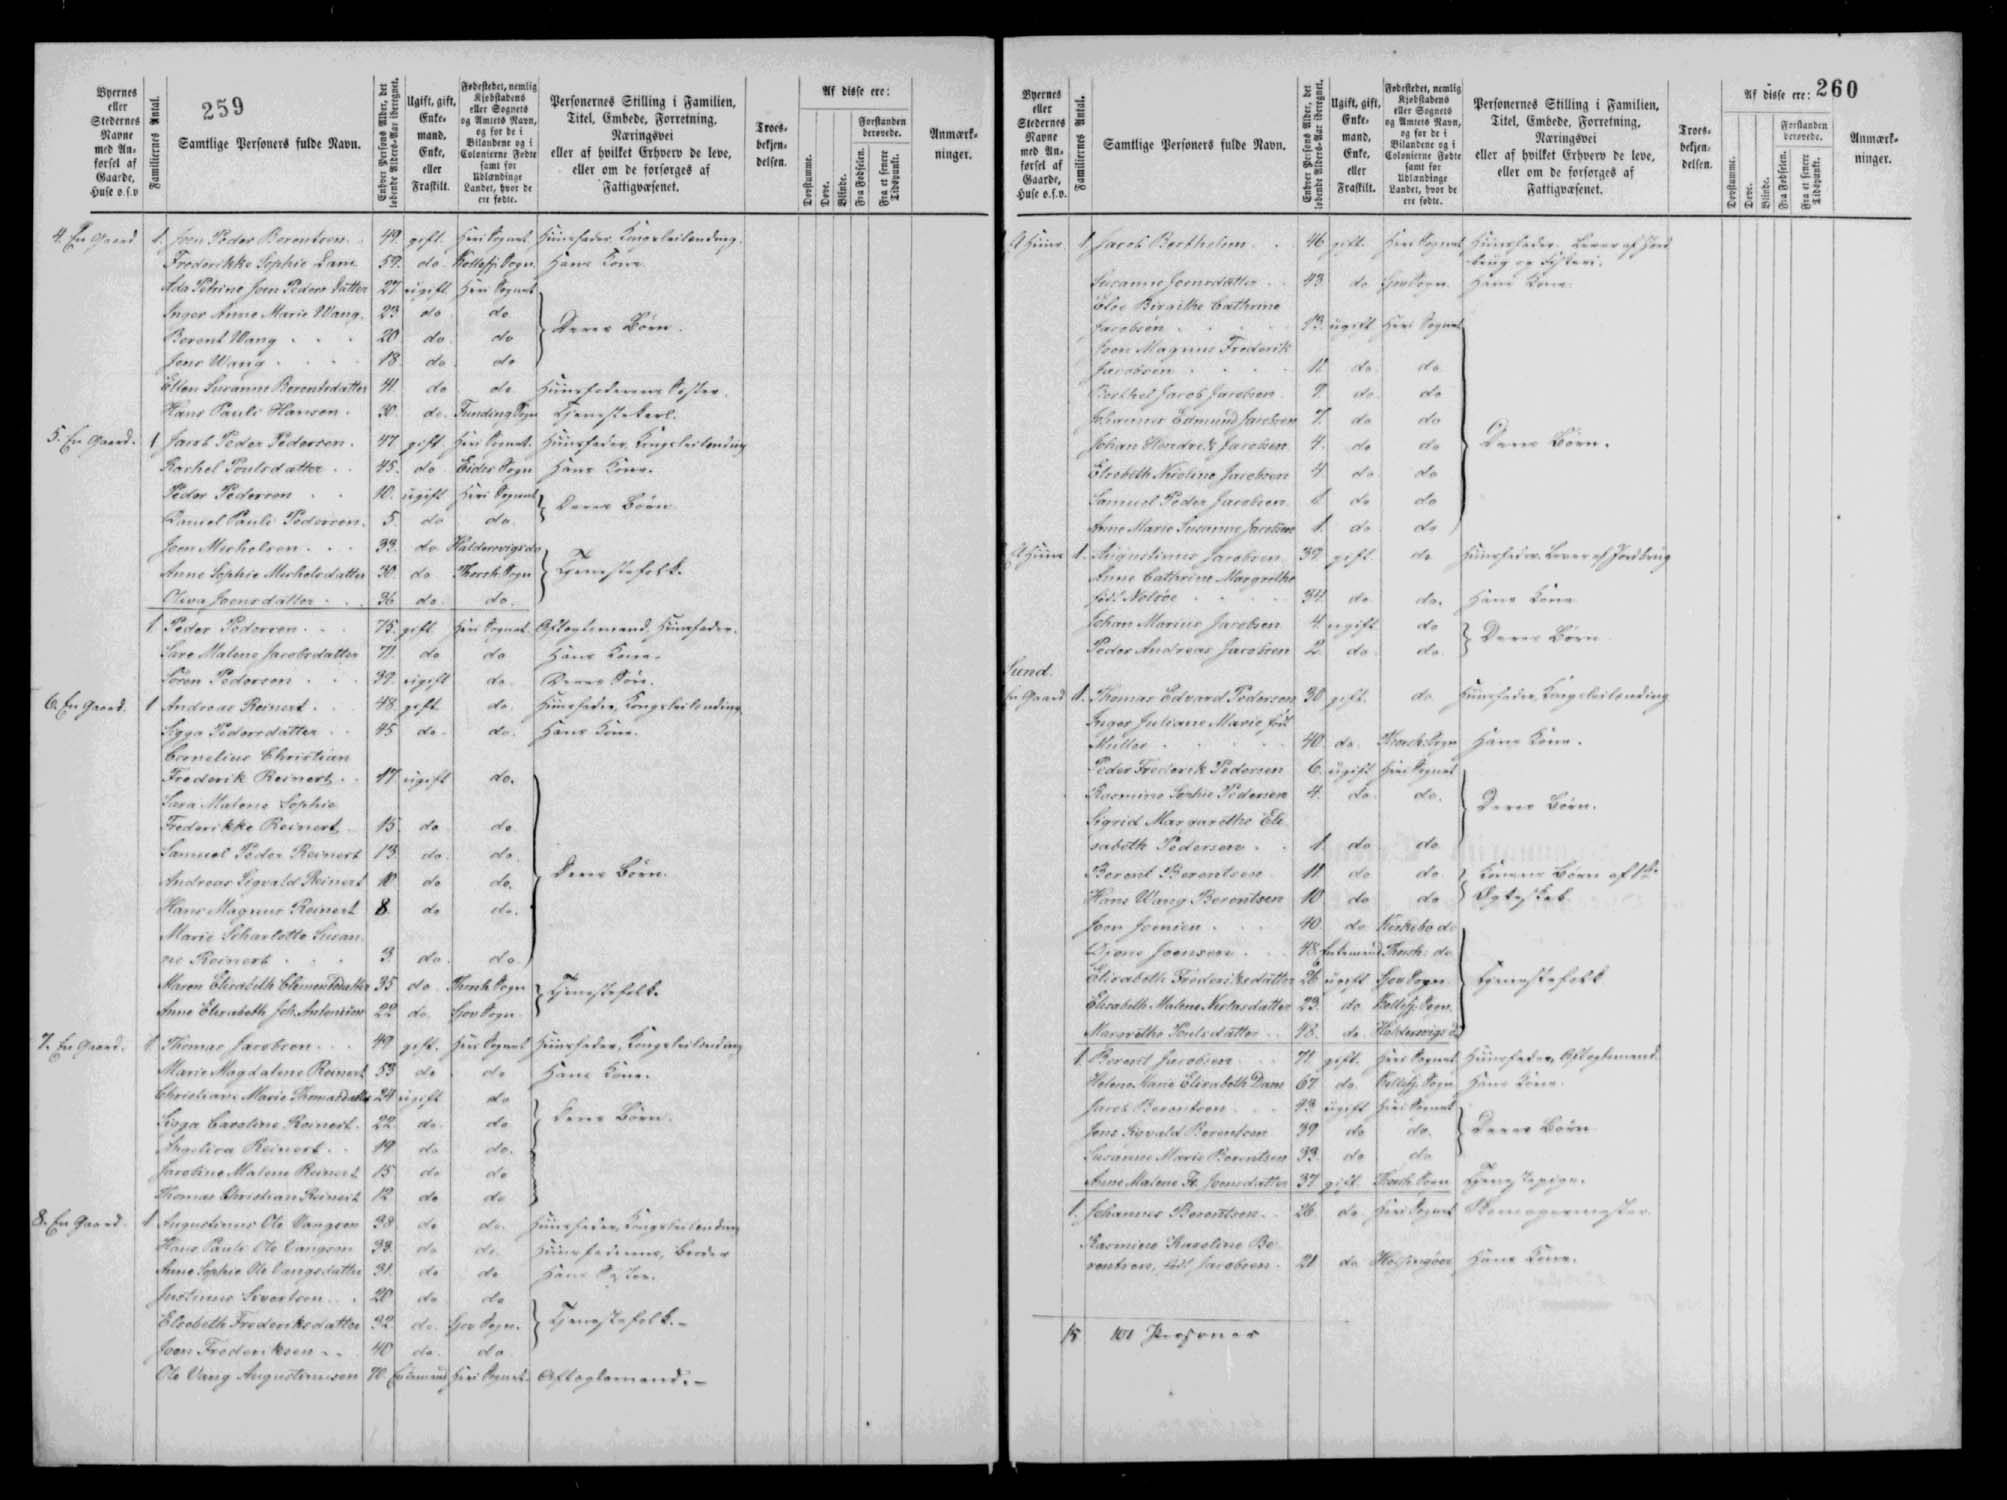 259
Byernes eller Stedernes Navne med Anførsel af Gaarde, Huse o.s.v
Familiernes Antal.
Samtlige Personers fulde Navn.
Enhver Persons Alder, det løbende Alders-Aar iberegnet.
Ugift, gift, Enkemand, Enke, eller Fraskilt.
Fødestedet, nemlig Kjøbstadens eller Sognets og Amtets Navn, og for de i Bilandene og i Colonierne Fødte samt for Udlændinge Landet, hvor de ere fødte.
Personernes Stilling i Familien, Titel, Embede, Forretning, Næringsvei eller af hvilket Erhverv de leve, eller om de forsørges af Fattigvæsenet.
Troesbekjendelsen.
Af disse ere:
Døvstumme.
Døve.
Blinde.
Forstanden berøvede.
Fra Fødselen.
Fra et senere Tidspunkt.
Anmærkninger.
4. En Gaard 1. Joen Peder Berentsen 49. gift. Heri Sognet Huusfader, Kongsleilending.
Frederikke Sophie Dam 59. do. Kollefj. Sogn Hans Kone
Ada Petrine Joen Peders datter 27 ugift Heri Sognet
Inger Anne Marie Wang. 23 do do Deres Börn.
Berent Wang 20 do. do
Jens Wang 18. do. do
Ellen Susanne Berentsdatter 41. do do. Huusfaderens Søster.
Hans Pauli Hansen 30. do. Funding Sogn Tjenestekarl.
5. En Gaard. 1 Jacob Peder Pedersen. 47 gift. Heri Sognet. Huusfader, Kongsleilending
Rachel Poulsdatter 45. do Eides Sogn Hans Kone.
Peder Pedersen 10. ugift Heri Sognet Deres Börn
Daniel Pauli Pedersen. 5. do do.
Joen Michelsen 33. do Haldersvigs do
Anne Sophie Michelsdatter 30. do Thorsh. Sogn Tjenestefolk.
Oliva Joensdatter 36 do. do.
1 Peder Pedersen 75. gift Heri Sognet Aftægtsmand, Huusfader.
Sare Malene Jacobsdatter 71. do do Hans Kone.
Sören Pedersen 39. ugift do. Deres Sön.
6. En Gaard. 1 Andreas Reinert 48. gift do. Huusfader, Kongsleilending
Sigga Pedersdatter 45 do. do. Hans Kone.
Cornelius Christian
Frederik Reinert 17 ugift do.
Sara Malene Sophie
Frederikke Reinert 15. do do
Samuel Peder Reinert 13 do. do.
Andreas Sigvald Reinert 10 do do. Deres Börn.
Hans Magnus Reinert 8. do do.
Marie Scharlotte Susan
ne Reinert 3. do. do
Maren Elisabeth Clementsdatter 35 do. Thorsh Sogn Tjenestefolk
Anne Elisabeth Joh. Antonisen 22 do. Gov Sogn
7. En Gaard. 1. Thomas Jacobsen 49 gift. Heri Sognet Huusfader, Kongsleilending
Marie Magdalene Reinert 53 do do Hans Kone.
Christiane Marie Thomasdatter 24 ugift do
Sigga Caroline Reinert. 22. do. do Deres Börn.
Angelica Reinert 19 do do.
Jacobine Malene Reinert 15 do do
Thomas Christian Reinert 12 do do
8. En Gaard. 1 Augustinus Ole Vangsen 38. do do. Huusfader, Kongsleilending
Hans Pauli Ole Vangsen 33. do do. Huusfaderens Broder
Anne Sophie Ole Vangsdatter 31. do do Hans Søster.
Justinus Sivertsen 20 do do
Elsebeth Frederiksdatter 32. do. Gov Sogn. Tjenestefolk.
Joen Frederiksen 40 do. do
Ole Vang Augustinusen 70. Enkemand Heri Sognet. Aftægtsmand.
260
Byernes eller Stedernes Navne med Anførsel af Gaarde, Huse o.s.v.
Familiernes Antal.
Samtlige Personers fulde Navn.
Enhver Persons Alder, det løbende Alders-Aar iberegnet.
Ugift, gift, Enkemand, Enke, eller Fraskilt.
Fødestedet, nemlig Kjøbstadens eller Sognets og Amtets Navn, og for de i Bilandene og i Colonierne Fødte samt for Udlændinge Landet, hvor de ere fødte.
Personernes Stilling i Familien, Titel, Embede, Forretning, Næringsvei eller af hvilket Erhverv de leve, eller om de forsørges af Fattigvæsenet.
Troesbekjendelsen.
Af disse ere:
Døvstumme.
Døve.
Blinde.
Forstanden berøvede.
Fra Fødselen.
Fra et senere Tidspunkt.
Anmærkninger.
Huus. 1 Jacob Berthelsen 46 gift. Heri Sognet Huusfader. Lever af Jord
brug og Fiskeri.
Susanne Joensdatter 43. do Gov Sogn. Hans Kone.
Else Birgithe Cathrine
Jacobsen 13. ugift Heri Sognet
Joen Magnus Frederik
Jacobsen 11 do. do.
Berthel Jacob Jacobsen 9. do. do
Johannes Edmund Jacobsen 7. do do
Johan Hendrik Jacobsen 4. do do Deres Börn.
Elsebeth Nicoline Jacobsen 4 do do
Samuel Peder Jacobsen 1 do do
Anne Marie Susanne Jacobsen 1. do do
Huus 1. Augustinus Jacobsen 39. gift. do Huusfader. Lever af Jordbrug
Anne Cathrine Margrethe
født Nolsöe 34 do do. Hans Kone
Johan Marius Jacobsen 4. ugift do Deres Börn
Peder Andreas Jacobsen 2. do. do.
Sund.
En Gaard 1. Thomas Edvard Pedersen 30 gift. do. Huusfader, Kongsleilending
Inger Juliane Marie født
Müller 40. do. Thorsh. Sogn Hans Kone.
Peder Frederik Pedersen 6. ugift Heri Sognet
Rasmine Sophie Pedersen 4. do do. Deres Börn.
Sigrid Margarethe Eli
sabeth Pedersen 1. do do
Berent Berentsen 11. do do. Konens Börn af 1ste
Hans Wang Berentsen 10 do do Ægteskab.
Joen Joensen 40. do Kirkebø do
Joensen 48. Enkemand Thorsh. do
Elisabeth Frederiksdatter 26 ugift Gov Sogn Tjenestefolk
Elisabeth Malene Niclasdatter 23. do. Kollefj. Sogn
Margrethe Poulsdatter 48. do. Haldersvigs do
1. Berent Jacobsen 71. gift. Heri Sognet Huusfader, Aftægtsmand.
Helene Marie Elisabeth Dam 67 do. Kollefj. Sogn Hans Kone.
Jacob Berentsen 43. ugift Heri Sognet
Jens Sigvald Berentsen 39 do do. Deres Börn
Susanne Marie Berentsen 33. do do
Anne Malene Fr. Joensdatter 37 gift Thorsh. Sogn Tjenestepige.
1. Johannes Berentsen 26. do. Heri Sognet Skomagermester.
Rasmine Karoline Be
rentsen, født Jacobsen. 21 do Helsingöer Hans Kone.
15 101 Personer